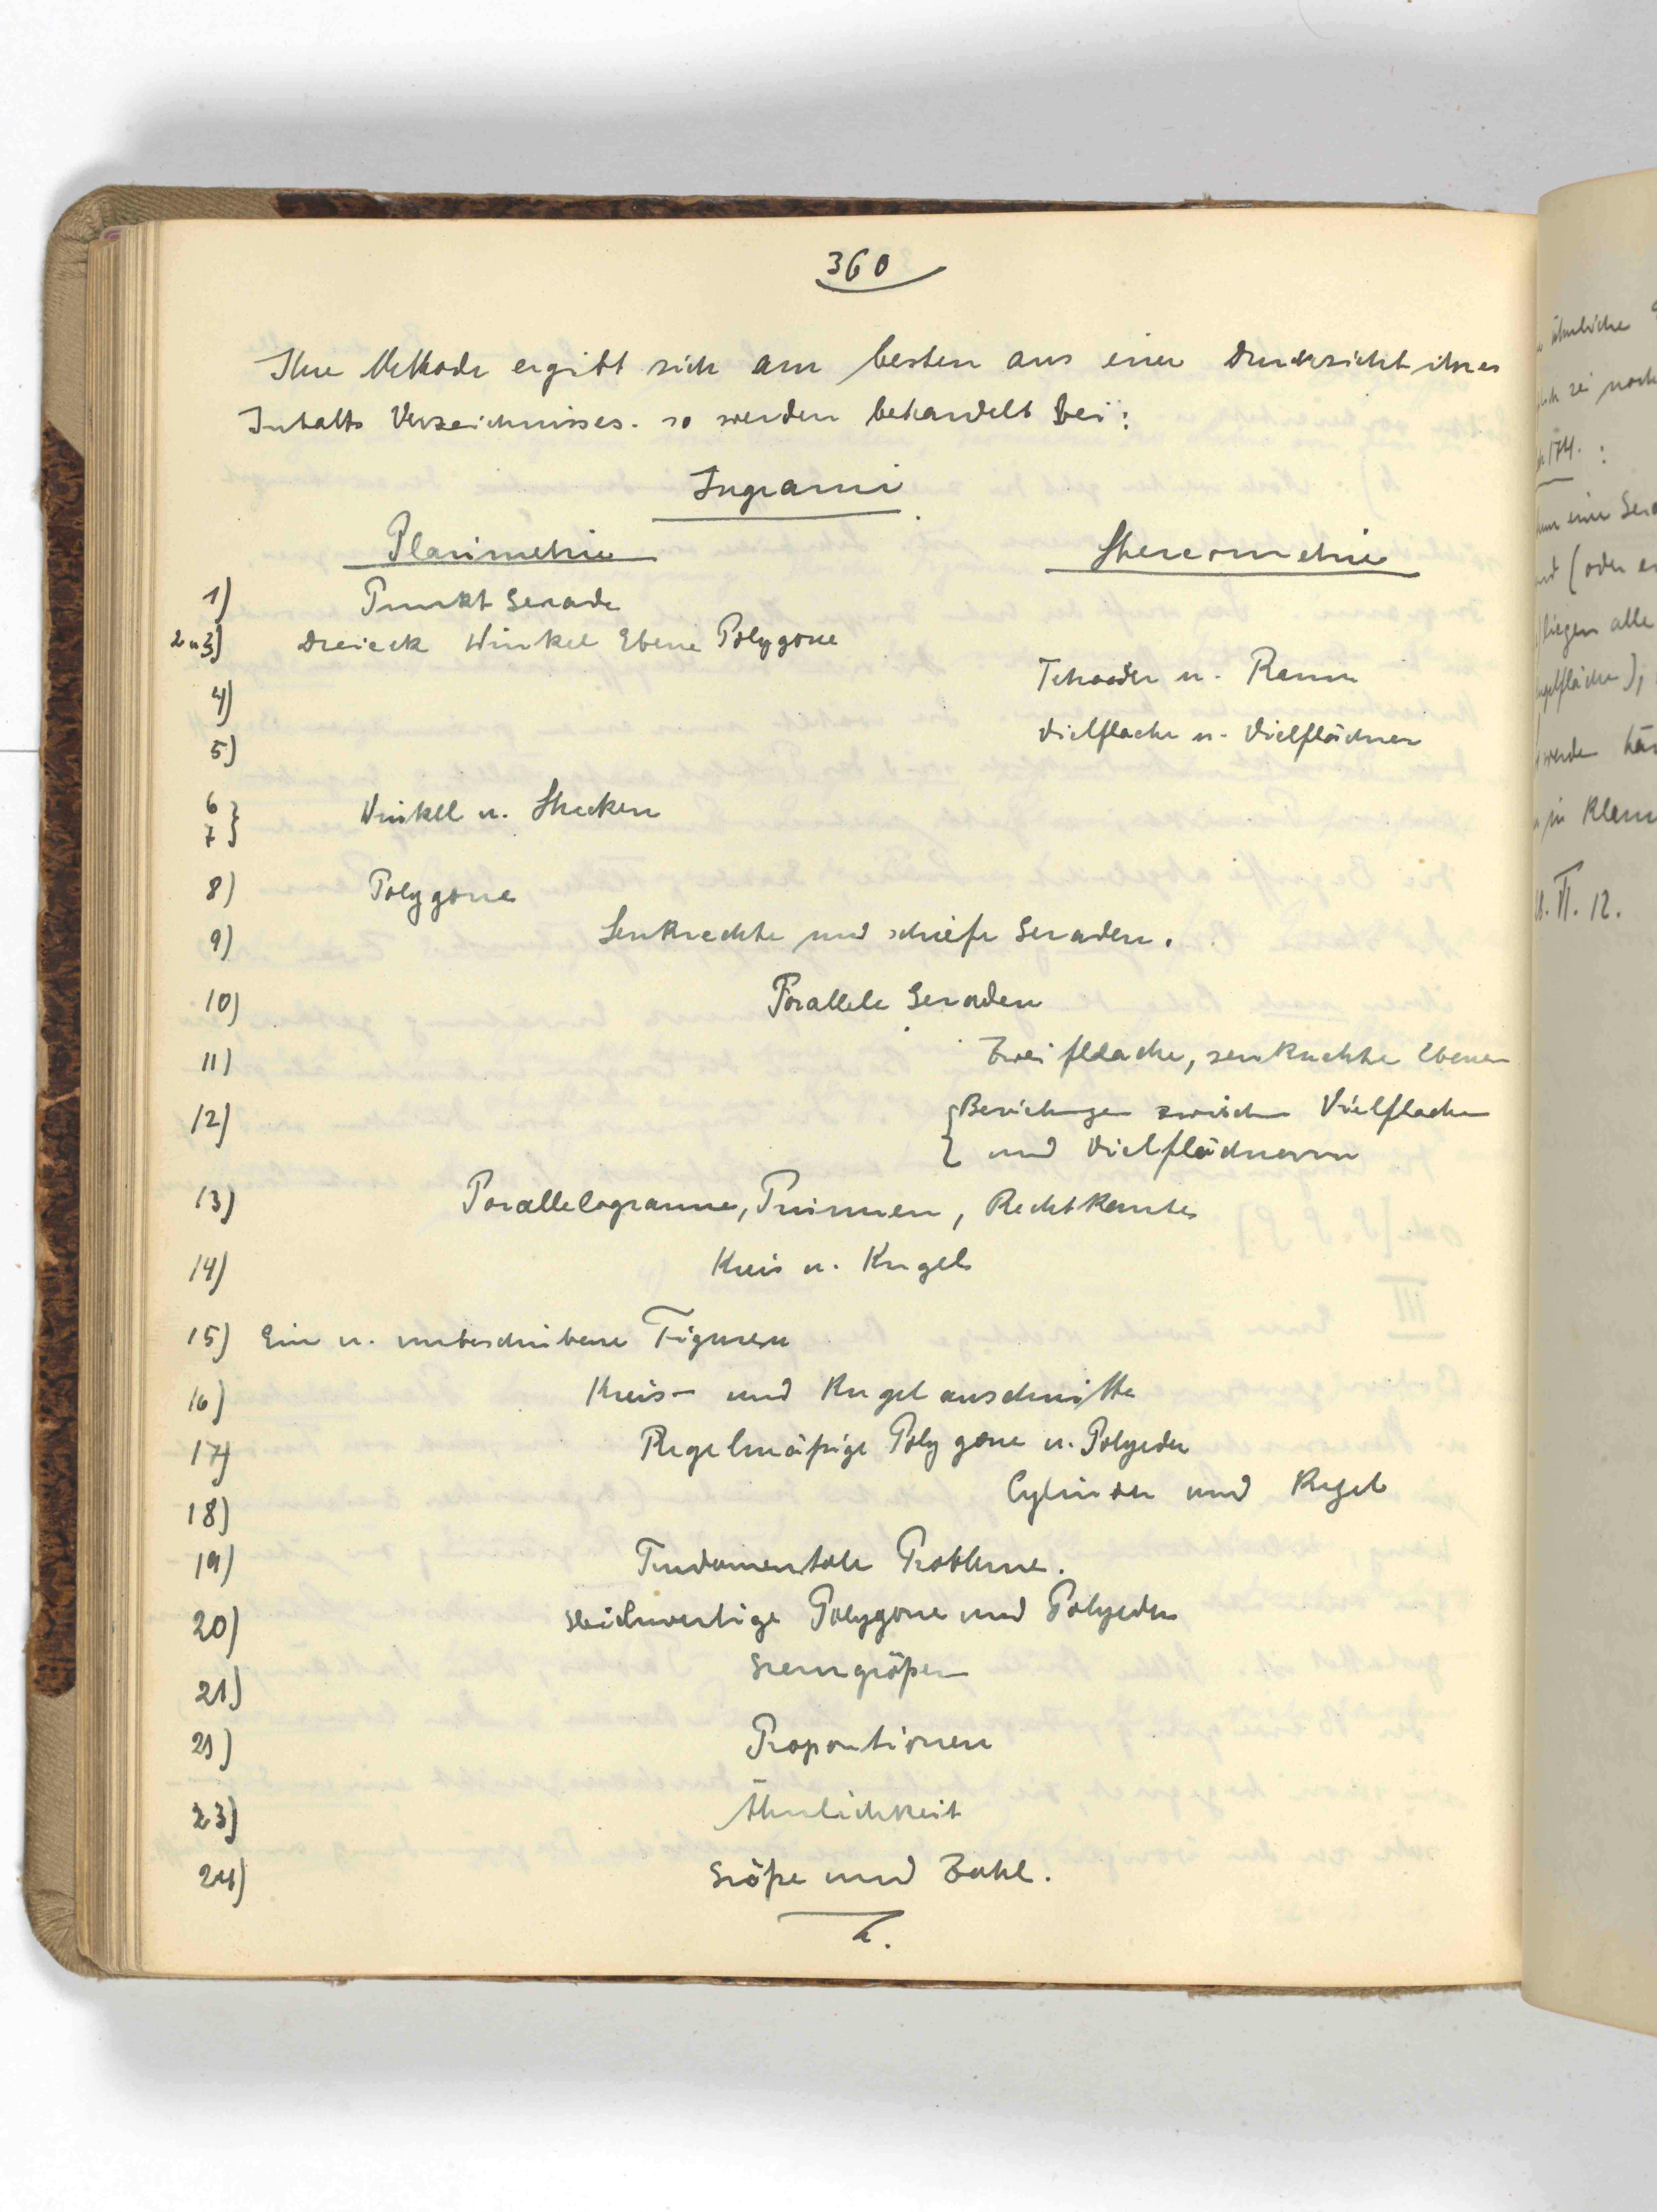 360
Ihre Methode ergibt sich am besten aus einer Durchsicht ihres
Inhalts Verzeichnisses. so werden behandelt bei:
Ingrami
Planimetrie Stereometrie
1) Punkt Gerade
2 u 3) Dreieck Winkel Ebene Polygone
4) Tetraeder u. Raum
5) Vielflache u. Vielflächner
6 7} Winkel u. Strecken
8) Polygone
9) Senkrechte und schiefe Geraden.
10) Parallele Geraden
11) Zweiflache, senkrechte Ebenen
12) {Beziehungen zwischen Vielflachen
und Vielflächnern
13) Parallelogramme, Prismen, Rechtkante
14) Kreis u. Kugel
15) Ein u. umbeschriebene Figuren
16) Kreis- und Kugelausschnitte
17) Regelmäßige Polygone u. Polyeder
18) Cylinder und Kegel
19) Fundamentale Probleme.
20) Gleichwertige Polygone und Polyeder
21) Grenzgrößen
21) Proportionen
23) Ähnlichkeit
24) Größe und Zahl.
ähnliche
sei noch
174. :
eine
(oder
liegen alle
werden
in
VI. 12.